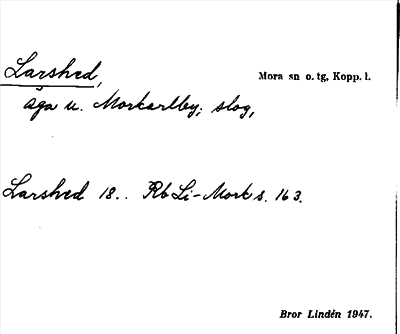 Larshed,
Mora sn o. tg, Kopp. l.
äga u. Morkarlby; slog,
Larshed 18.. Rb Li-Mork s. 163.
Bror Lindén 1947.